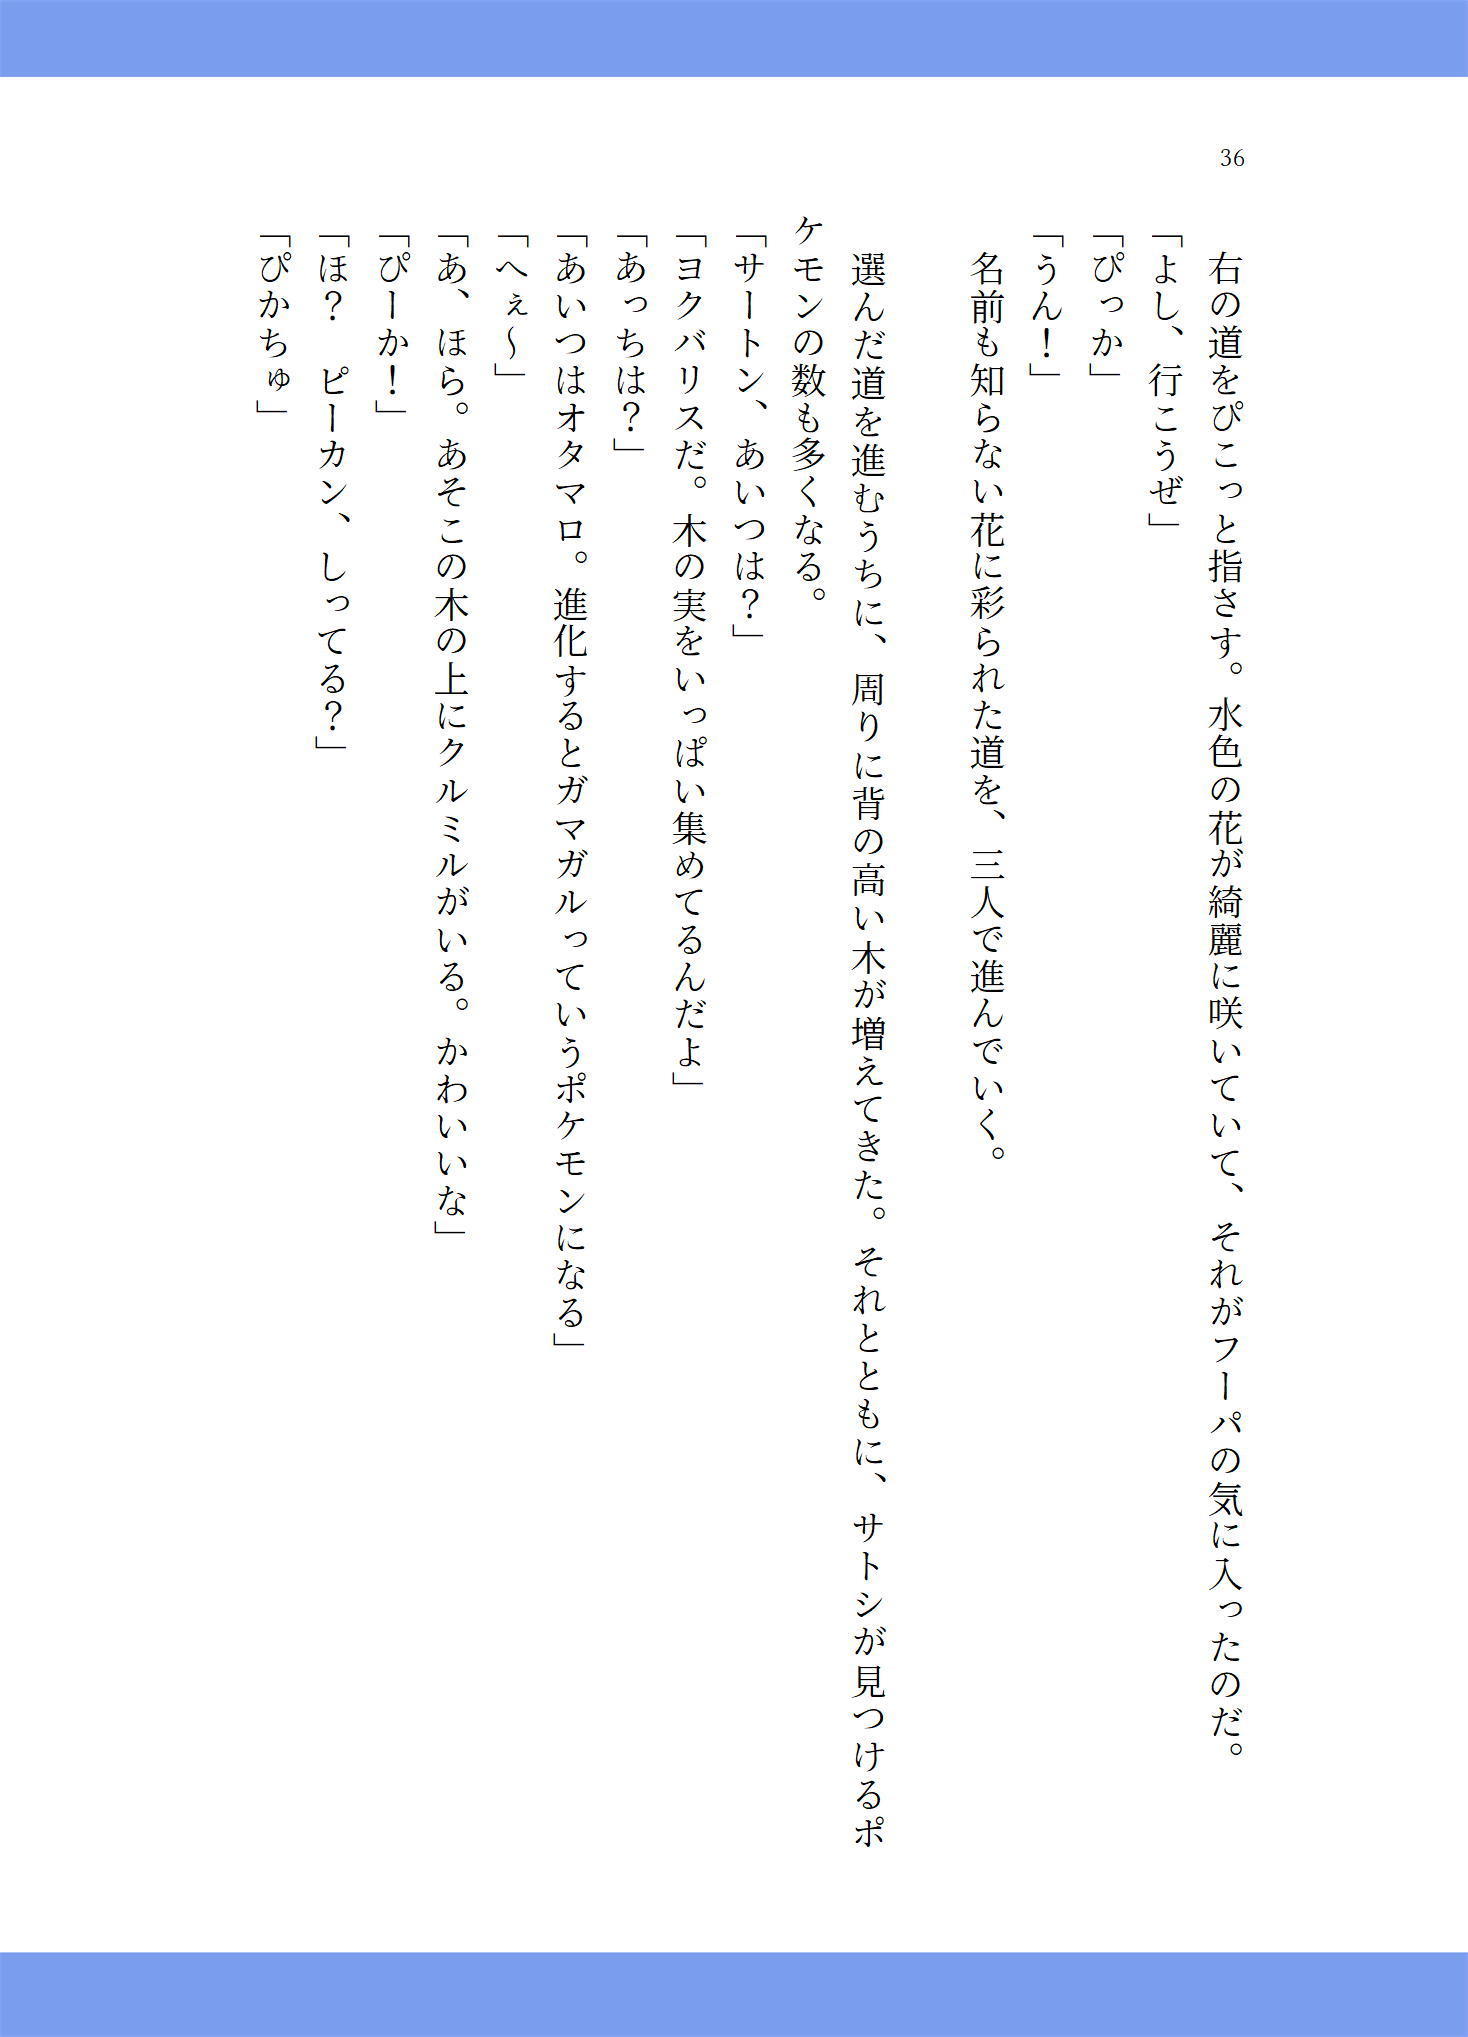 36
　右の道をぴこっと指さす。水色の花が綺麗に咲いていて、それがフーパの気に入ったのだ。
「よし、行こうぜ」
「ぴっか」
「うん！」
　名前も知らない花に彩られた道を、三人で進んでいく。
　選んだ道を進むうちに、周りに背の高い木が増えてきた。それとともに、サトシが見つけるポ
ケモンの数も多くなる。
「サートン、あいつは？」
「ヨクバリスだ。木の実をいっぱい集めてるんだよ」
「あっちは？」
「あいつはオタマロ。進化するとガマガルっていうポケモンになる」
「へぇ～」
「あ、ほら。あそこの木の上にクルミルがいる。かわいいな」
「ぴーか！」
「ほ？　ピーカン、しってる？」
「ぴかちゅ」